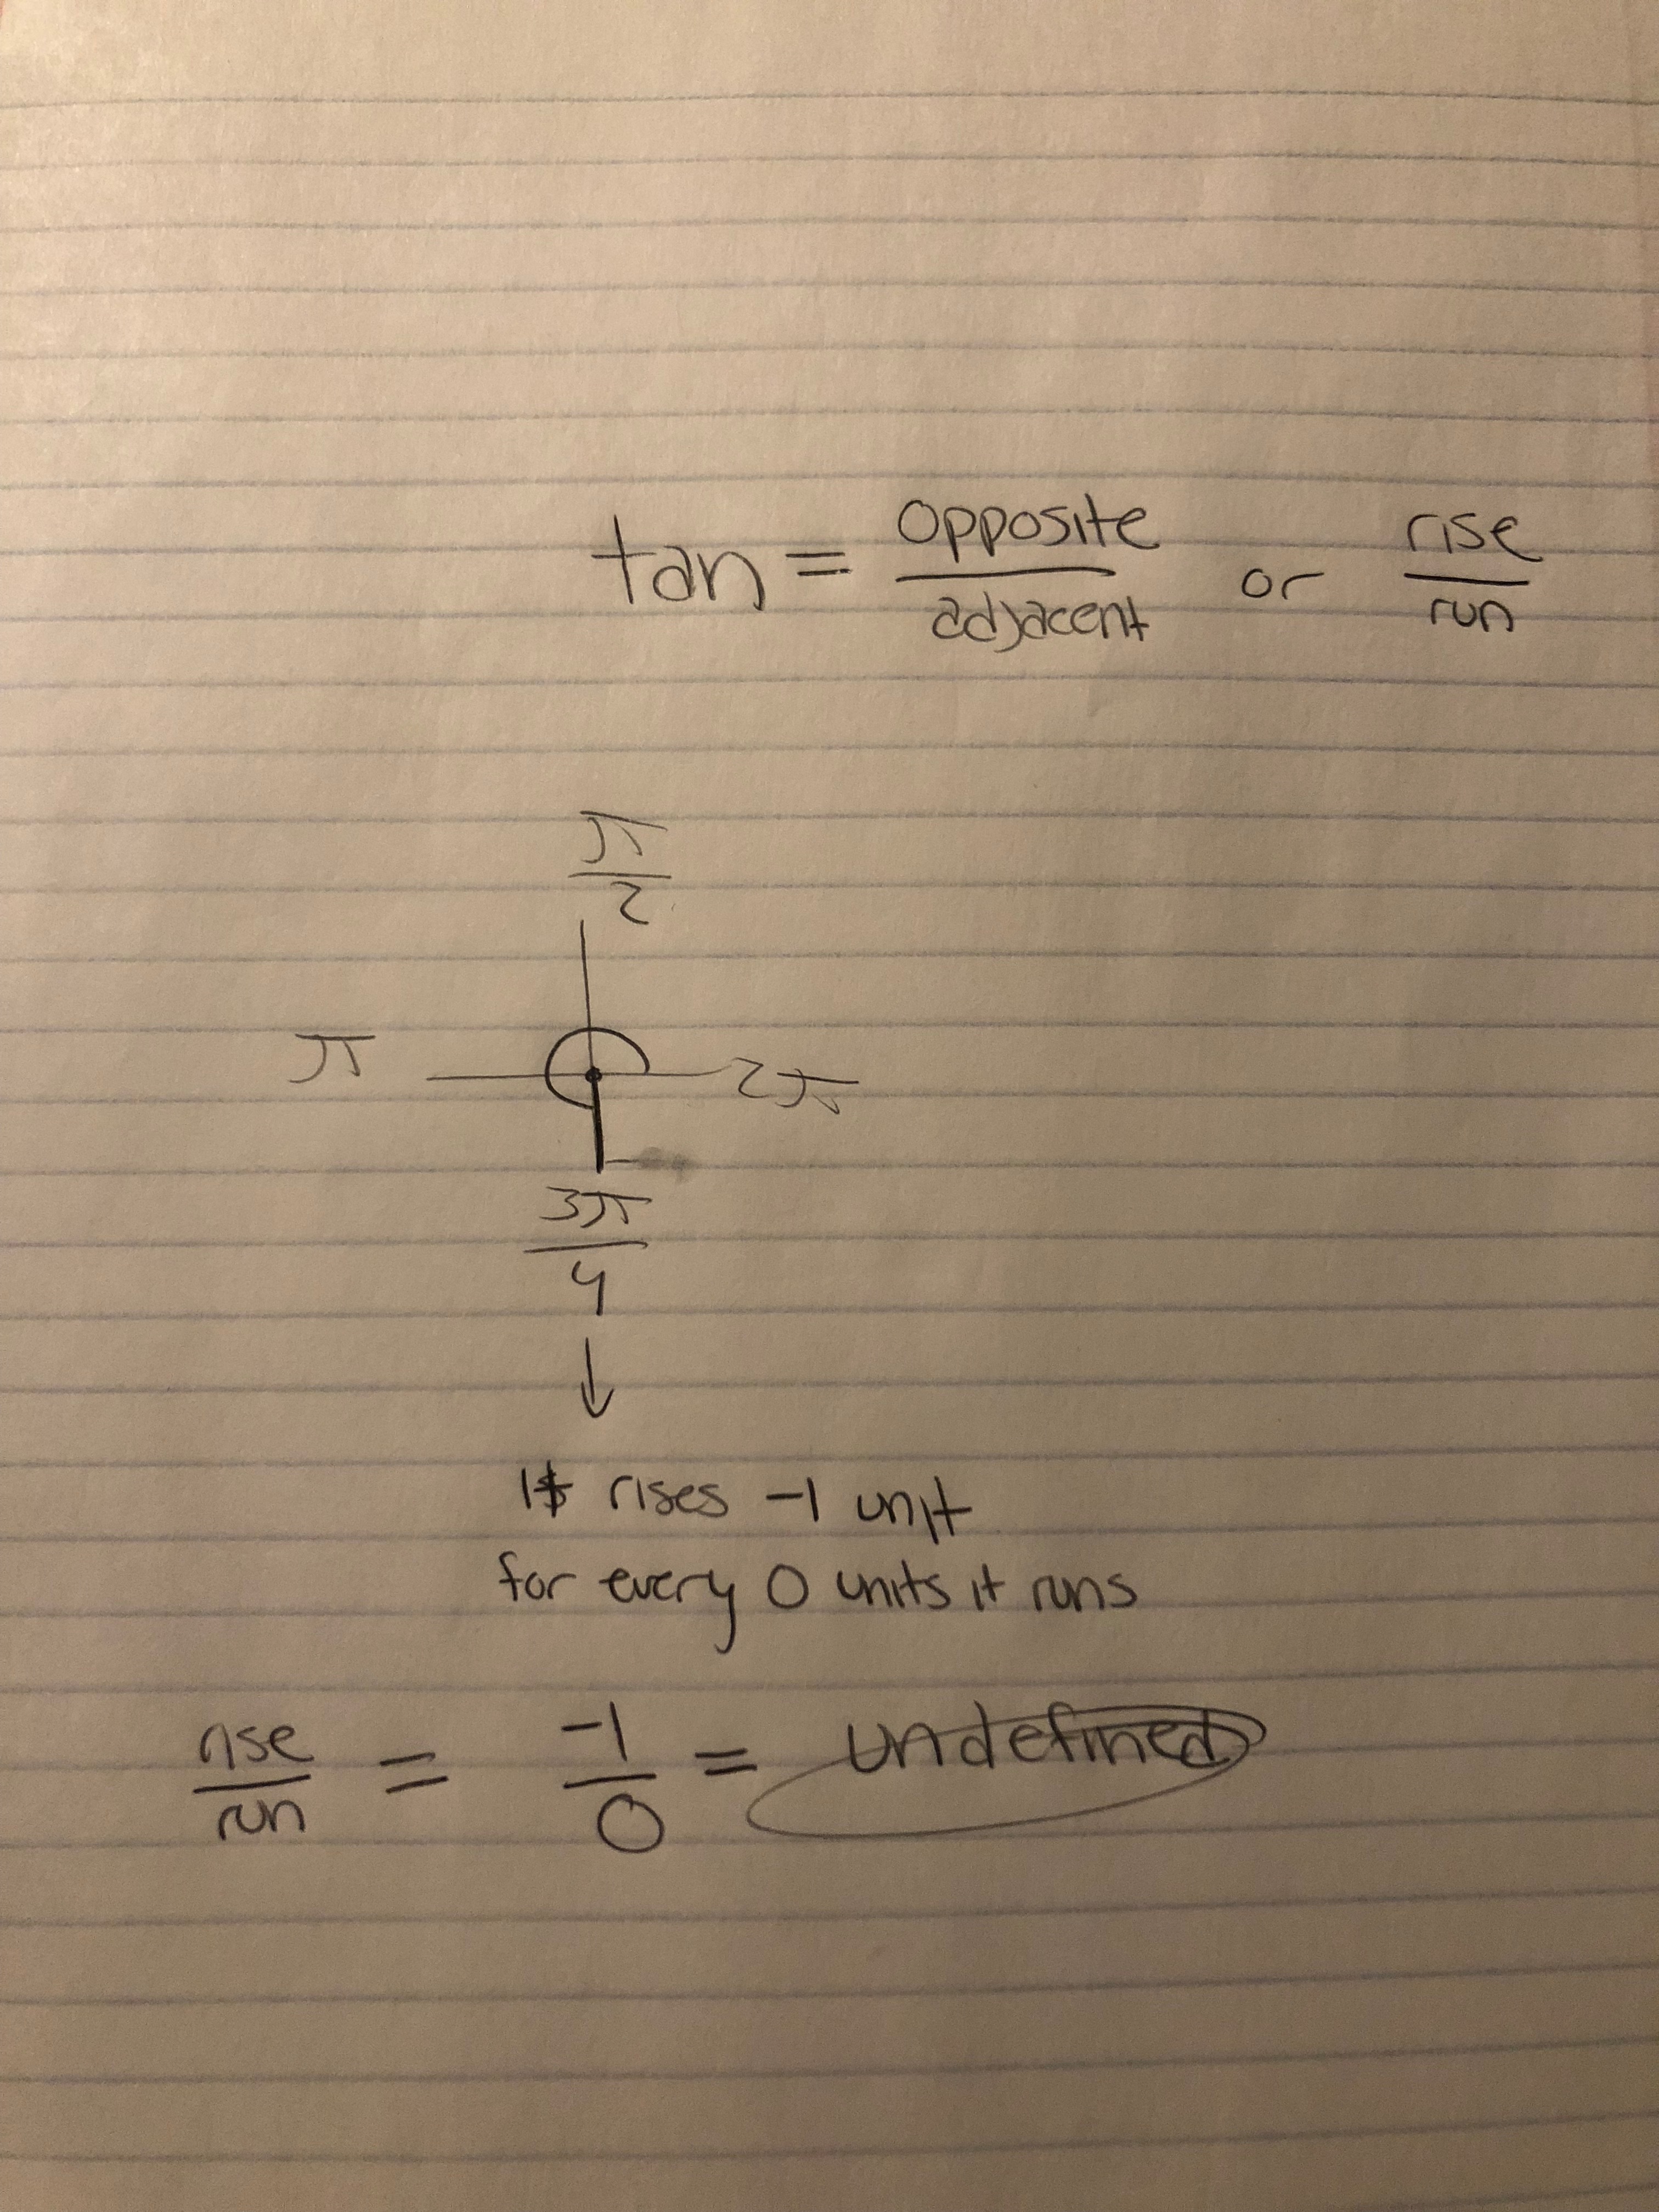 tan = opposite/adjacent or rise/run
π/2
π 2π
3π/4
↓
It rises -1 unit
for every 0 units it runs
rise/run = -1/0 = undefined